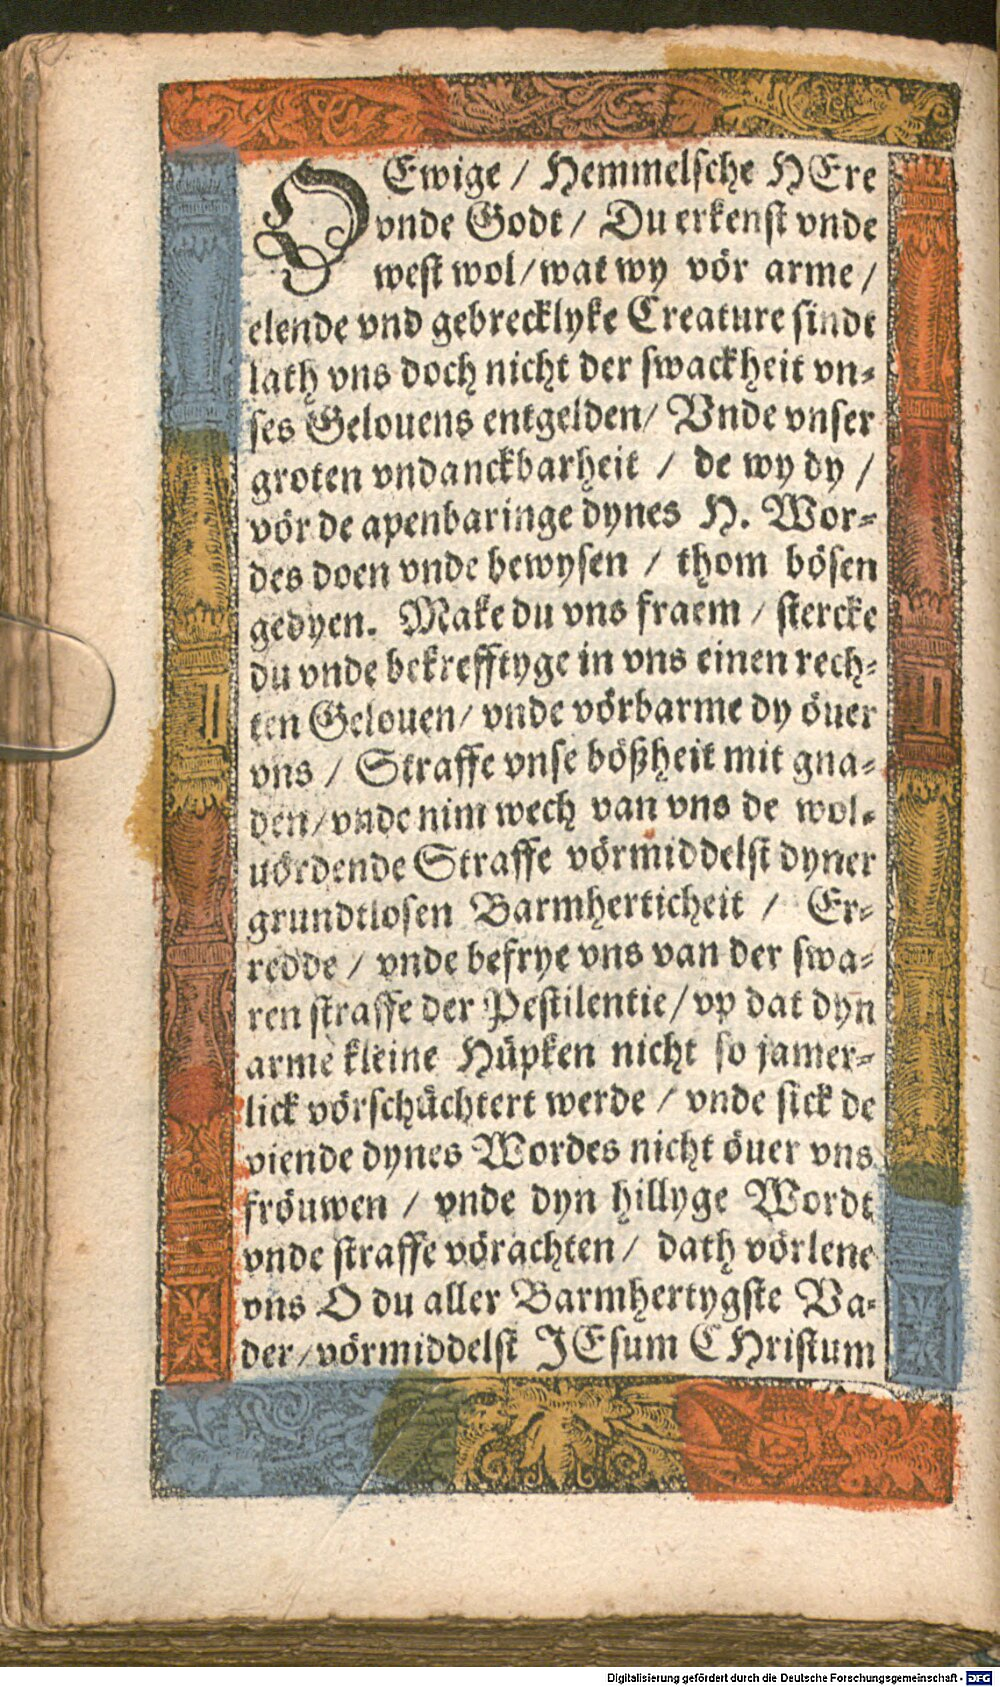 O Ewige / Hemmelsche HEre
vnde Godt / Du erkenst vnde
west wol / wat wy vör arme /
elende vnd gebrecklyke Creature sindt
lath vns doch nicht der swackheit vn⸗
ses Gelouens entgelden / Vnde vnser
groten vndanckbarheit / de wy dy /
vör de apenbaringe dynes H. Wor⸗
des doen vnde bewysen / thom bösen
gedyen. Make du vns fraem / stercke
du vnde bekrefftyge in vns einen rech⸗
ten Gelouen / vnde vörbarme dy öuer
vns / Straffe vnse bößheit mit gna⸗
den / vnde nim wech van vns de wol⸗
uördende Straffe vörmiddelst dyner
grundtlosen Barmherticheit / Er⸗
redde / vnde befrye vns van der swa⸗
ren straffe der Pestilentie / vp dat dyn
arme kleine Hüpken nicht so jamer⸗
lick vörschüchtert werde / vnde sick de
viende dynes Wordes nicht öuer vns
fröuwen / vnde dyn hillyge Wordt
vnde straffe vörachten / dath vörlene
vns O du aller Barmhertygste Va⸗
der / vörmiddelst JEsum CHristum
Digitalisierung gefördert durch die Deutsche Forschungsgemeinschaft - DFG